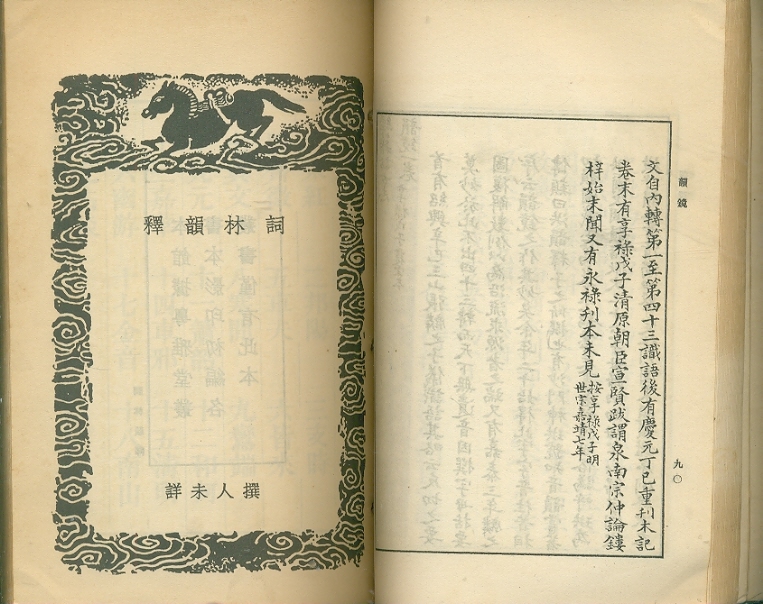 韻鏡
文自內轉第一至第四十三識語後有慶元丁巳重刋木記
卷末有享祿戊子清原朝臣宣賢跋謂泉南宗仲論鏤
梓始末聞又有永祿刋本未見
按享祿戊子明
世宗嘉靖七年
九〇
釋韻林詞
詳未人撰